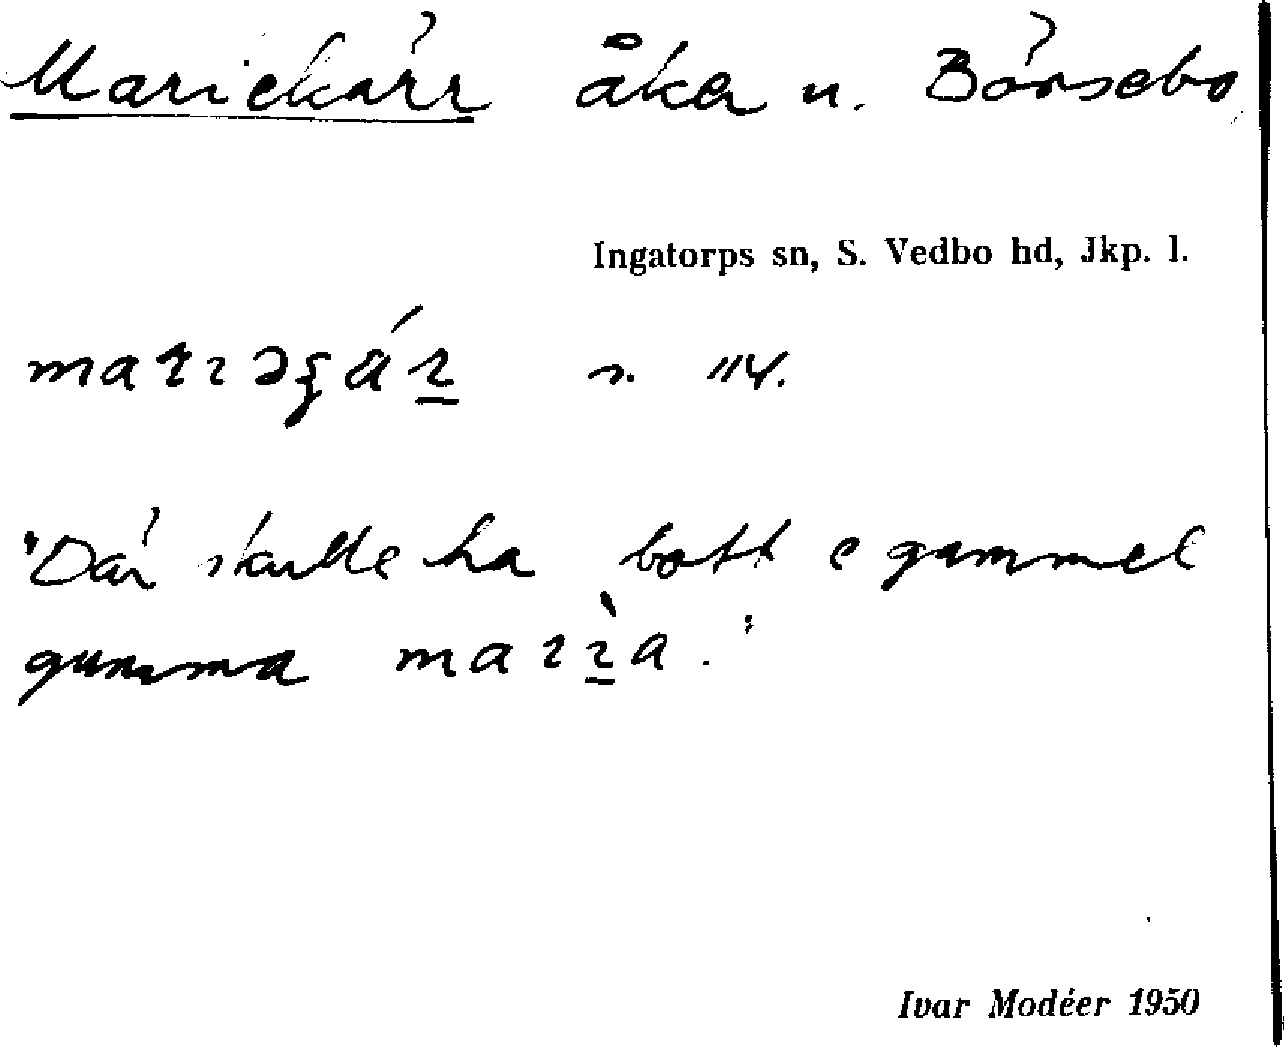 Mariekärr åker n. Börsebo
Ingatorps sn, S. Vedbo hd, Jkp. l.
n. 114.
"Där skulle ha bott e gammel
gumma
Ivar Modéer 1950